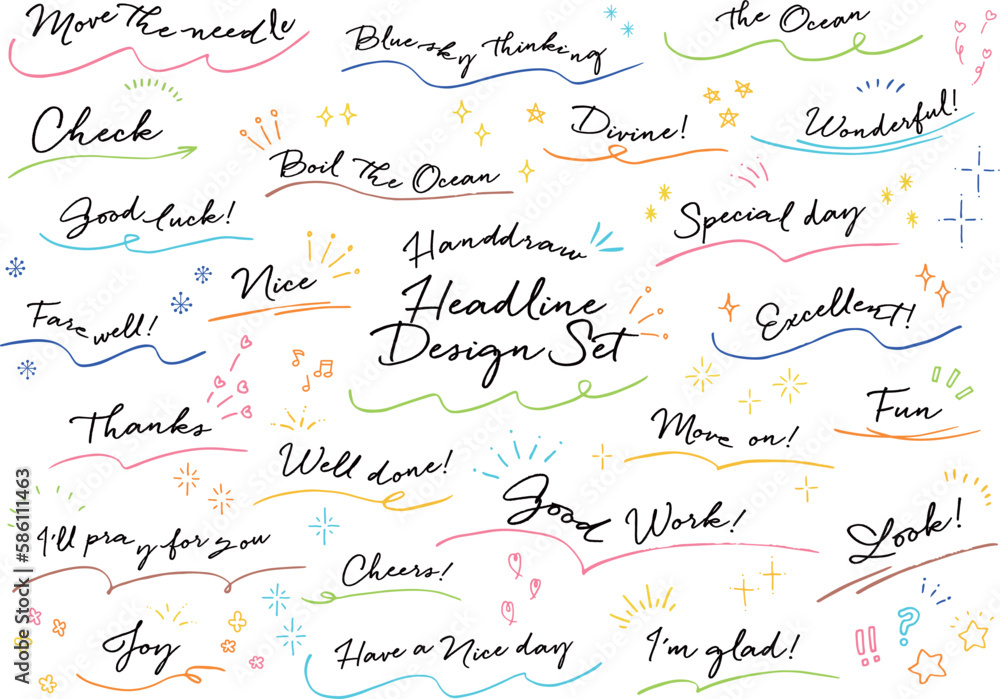 Move the needle
Blue sky thinking
the Ocean
Check
Boil the Ocean
Divine!
Wonderful!
Good luck!
Special day
Handdraw
Headline
Design Set
Nice
Farewell!
Excellent!
Thanks
Well done!
Move on!
Fun
I'll pray for you
Good Work!
Look!
Cheers!
Joy
Have a Nice day
I'm glad!
!! ?
Adobe Stock | #586111463